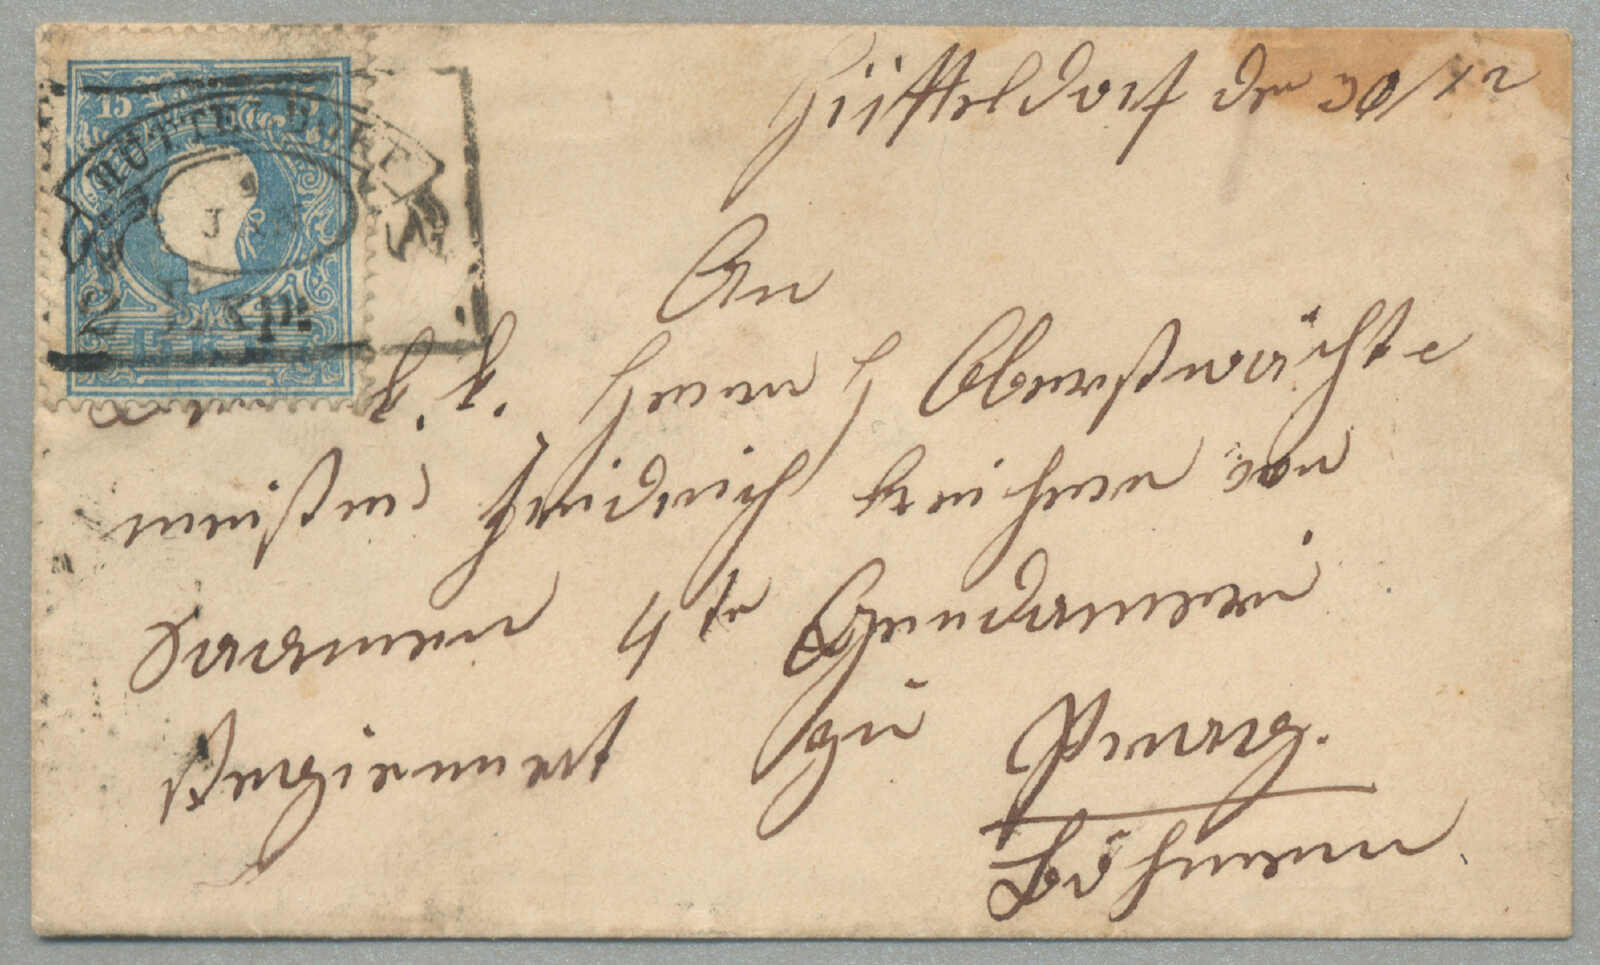 15
HÜTTELDORF
2 J
Expr.
Hüttteldorf den 30/12
An
k. k. Herrn H Oberstwachte
meister Freidrich Freiherrn von
4te Gendamerei
Regiement zu Praag.
Böhmen